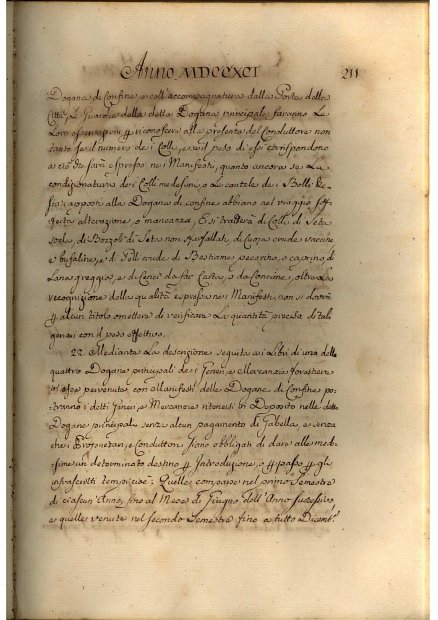 Anno MDCCXCI 211
Dogana di Confine, e coll'accompagnatura dalla Porta della
Città, Le Guardie della detta Dogana principale faranno Le
Loro operazioni p riconoscere alla presenza del Conduttore non
tanto se il numero de i Colli, e se il peso di essi corrispondono
a ciò che sarà espresso ne i Manifesti, quanto ancora se La
condizionatura de i Colli medesimi, o Le cautele de i Bolli
apposti alla Dogana di confine abbiano nel viaggio sof-
ferta alterazione, o mancanza, E si tratterà di Colli di Seta
soda, di Bozzoli di Seta non sfarfallati, di Cuoja crude vaccine
e bufaline, e di Pelli crude di Bestiame pecorino, o caprino di
Lana greggia, e di Cenci da far Carta, o da Concime, oltre La
recognizione della qualità espressa nei Manifesti, non si dovrà
p alcun titolo omettere di verificare La quantità precisa di tali
generi con il peso effettivo.
22. Mediante La descrizione seguita a i Libri di una delle
quattro Dogane principali de i Generi, e Mercanzie forestiere
in esse pervenute con Manifesti delle Dogane di Confine po-
tranno i detti Generi, e Mercanzie ritenersi in Deposito nelle dette
Dogane principali senza alcun pagamento di Gabella, e senza
che i Proprietari, e Conduttori siano obbligati di dare alle mede-
sime un determinato destino p Introduzione, o p passo p gli
infrascritti tempi cioè: Quelle comparse nel primo Semestre
di ciascun'Anno, fino al Mese di Giugno dell'Anno successivo
e quelle venute nel secondo Semestre fino a tutto Dicemb.